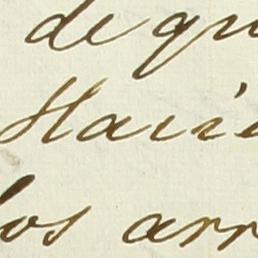 de qu
Haii
los arr